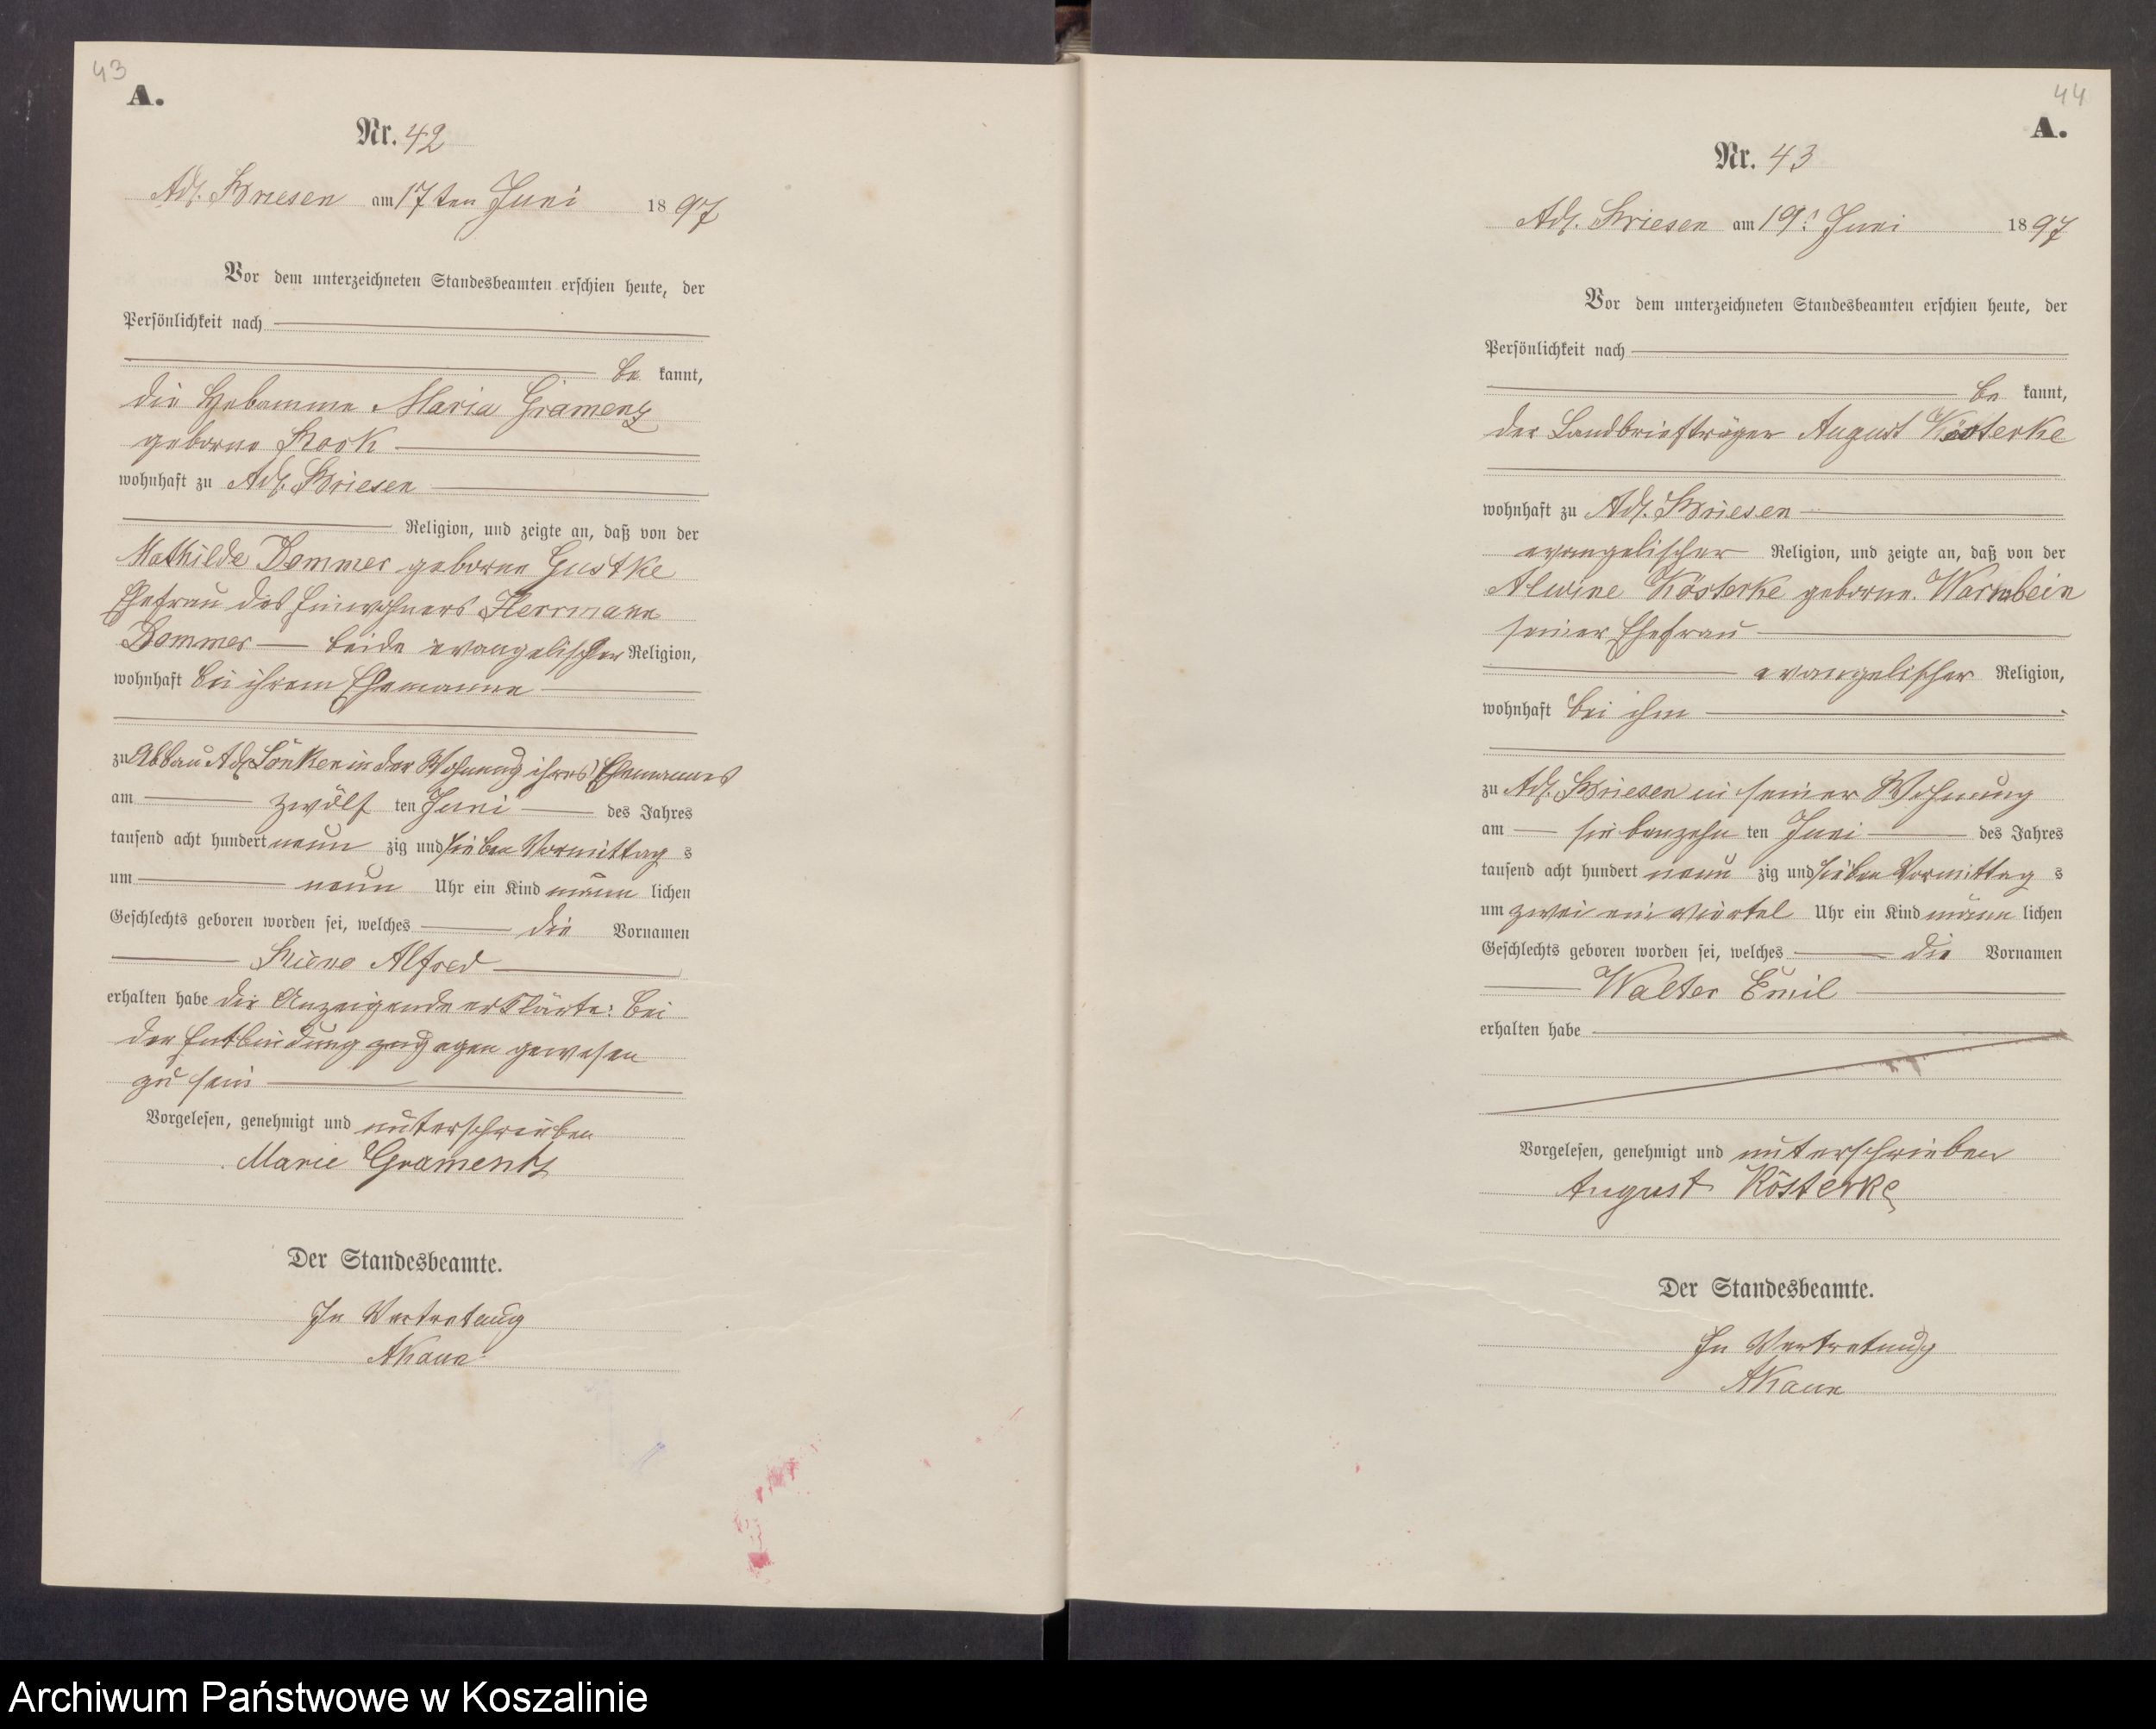 43
A.
Nr. 42
Adl. Briesen am 17ten Juni 1897
Vor dem unterzeichneten Standesbeamten erschien heute, der
Persönlichkeit nach
be kannt,
die Hebamme Maria Gramenz
geborne
wohnhaft zu Adl. Briesen
Religion, und zeigte an, daß von der
Mathilde Dommer geborne Gustke
Ehefrau des Einwohners Herrmann
Dommer beide evangelischer Religion,
wohnhaft bei ihrem Ehemanne
zu Abbau Adl. in der Wohnung ihres Ehemannes
am zwölf ten Juni des Jahres
tausend acht hundert neun zig und sieben Vormittag s
um neun Uhr ein Kind männ lichen
Geschlechts geboren worden sei, welches die Vornamen
Alfred
erhalten habe die Anzeigende erklärte: bei
der Entbindung zugegen gewesen
zu sein
Vorgelesen, genehmigt und unterschrieben
Marie Gramentz
Der Standesbeamte.
In Vertretung
44
A.
Nr. 43
Adl. Briesen am 19. Juni 1897
Vor dem unterzeichneten Standesbeamten erschien heute, der
Persönlichkeit nach
be kannt,
der Landbriefträger August Kösterke
wohnhaft zu Adl. Briesen
evangelischer Religion, und zeigte an, daß von der
Alwine Kösterke geborne Warmbein
seiner Ehefrau
evangelischer Religion,
wohnhaft bei ihm
zu Adl. Briesen in seiner Wohnung
am siebenzehn ten Juni des Jahres
tausend acht hundert neun zig und sieben Vormittag s
um zwei ein viertel Uhr ein Kind männ lichen
Geschlechts geboren worden sei, welches die Vornamen
Walter Emil
erhalten habe
Vorgelesen, genehmigt und unterschrieben
August Kösterke
Der Standesbeamte.
In Vertretung
Archiwum Państwowe w Koszalinie